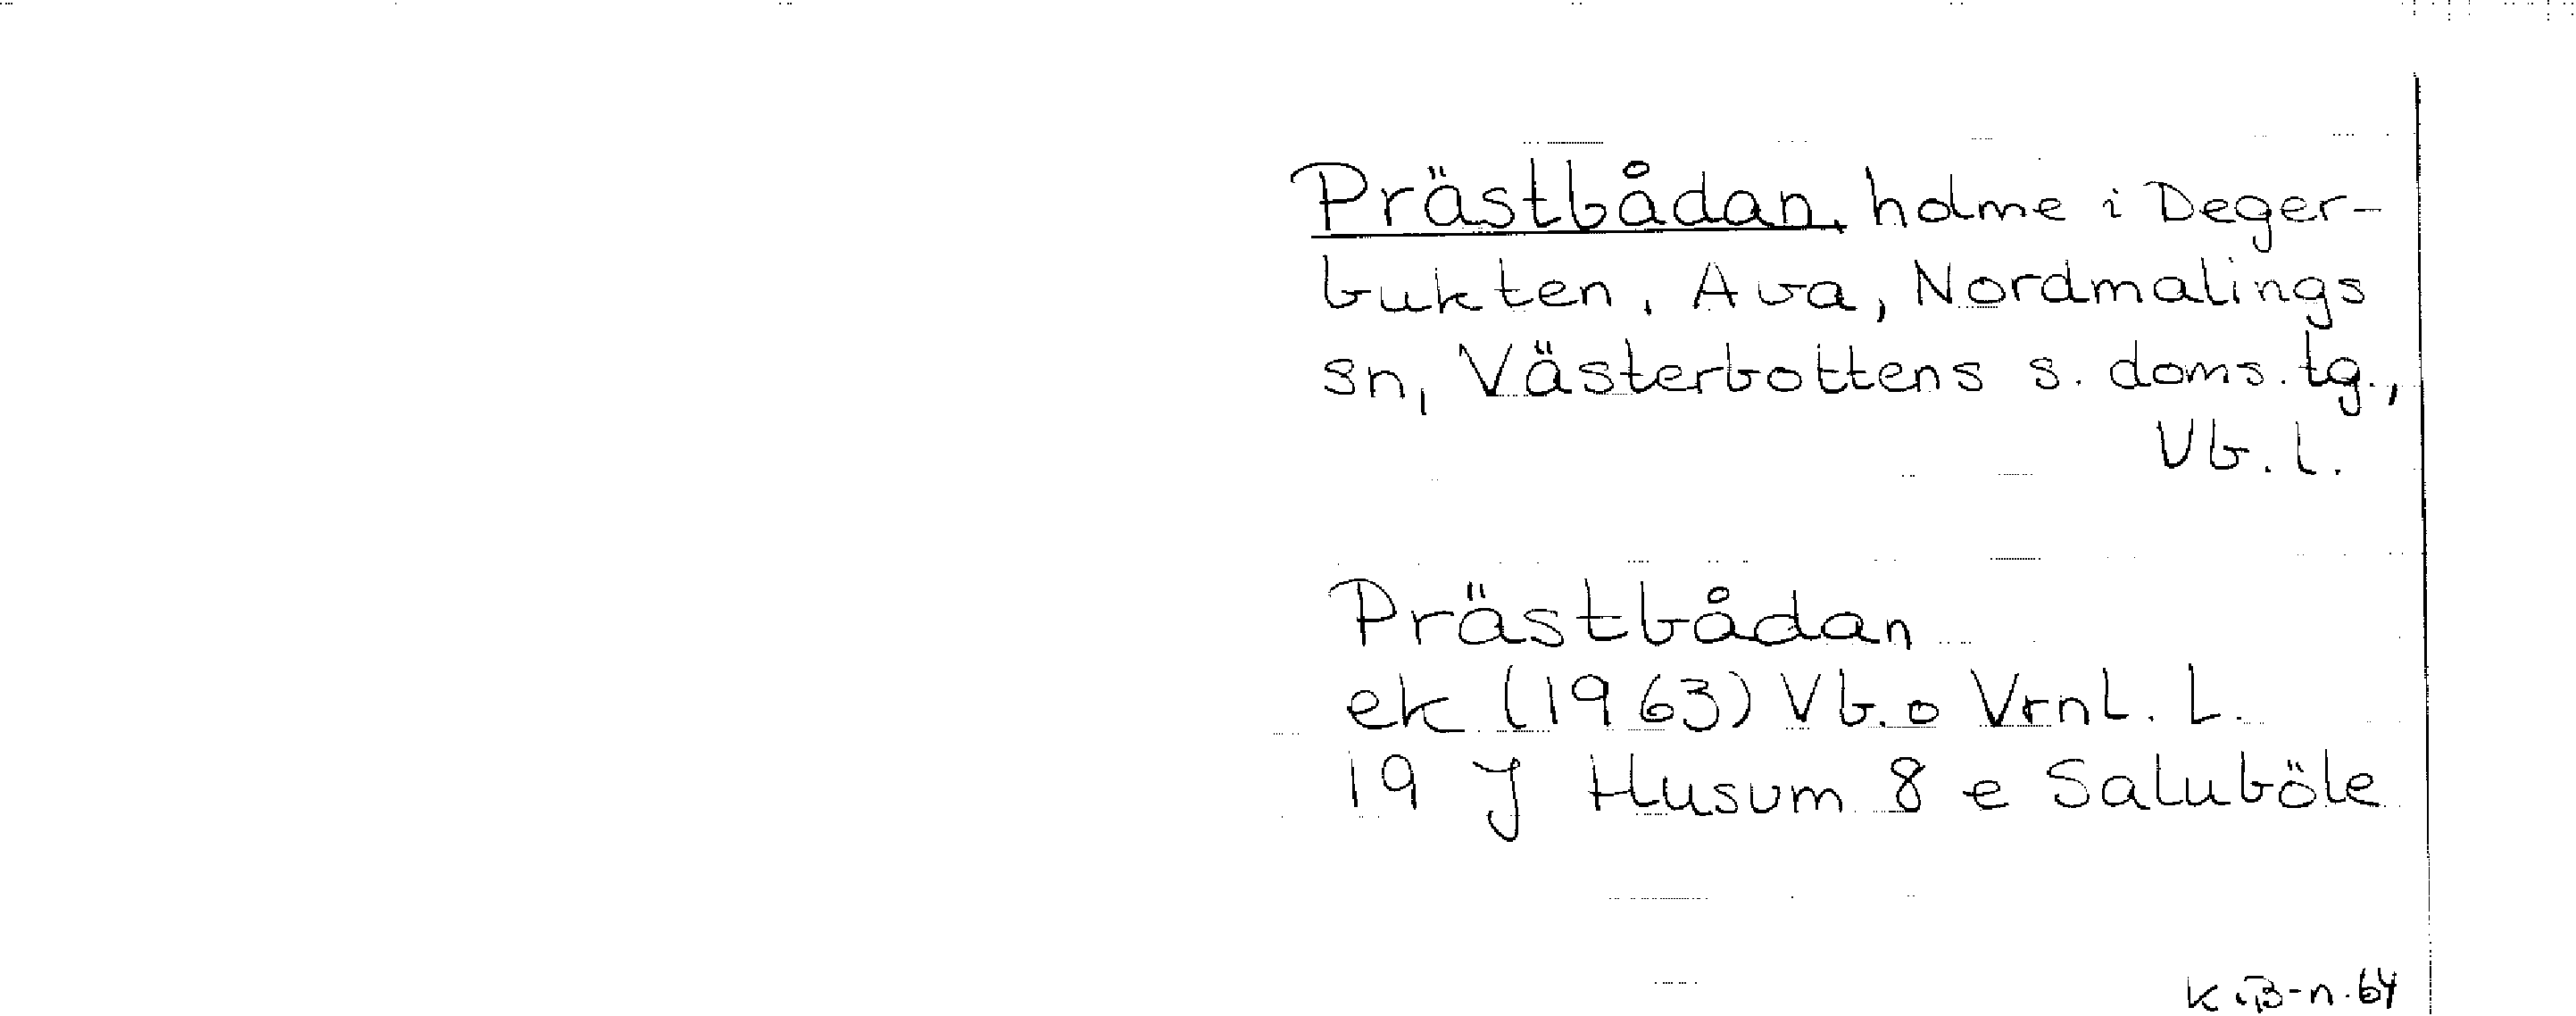 Prästbådan, holme i Deger-
bukten, Ava, Nordmalings
sn, Västerbottens s. doms.tg.,
Vb. l.
Prästbådan
ek (1963) Vb. o Vrnl. L.
19 J Husum 8 e Saluböle
K.B-n. 64